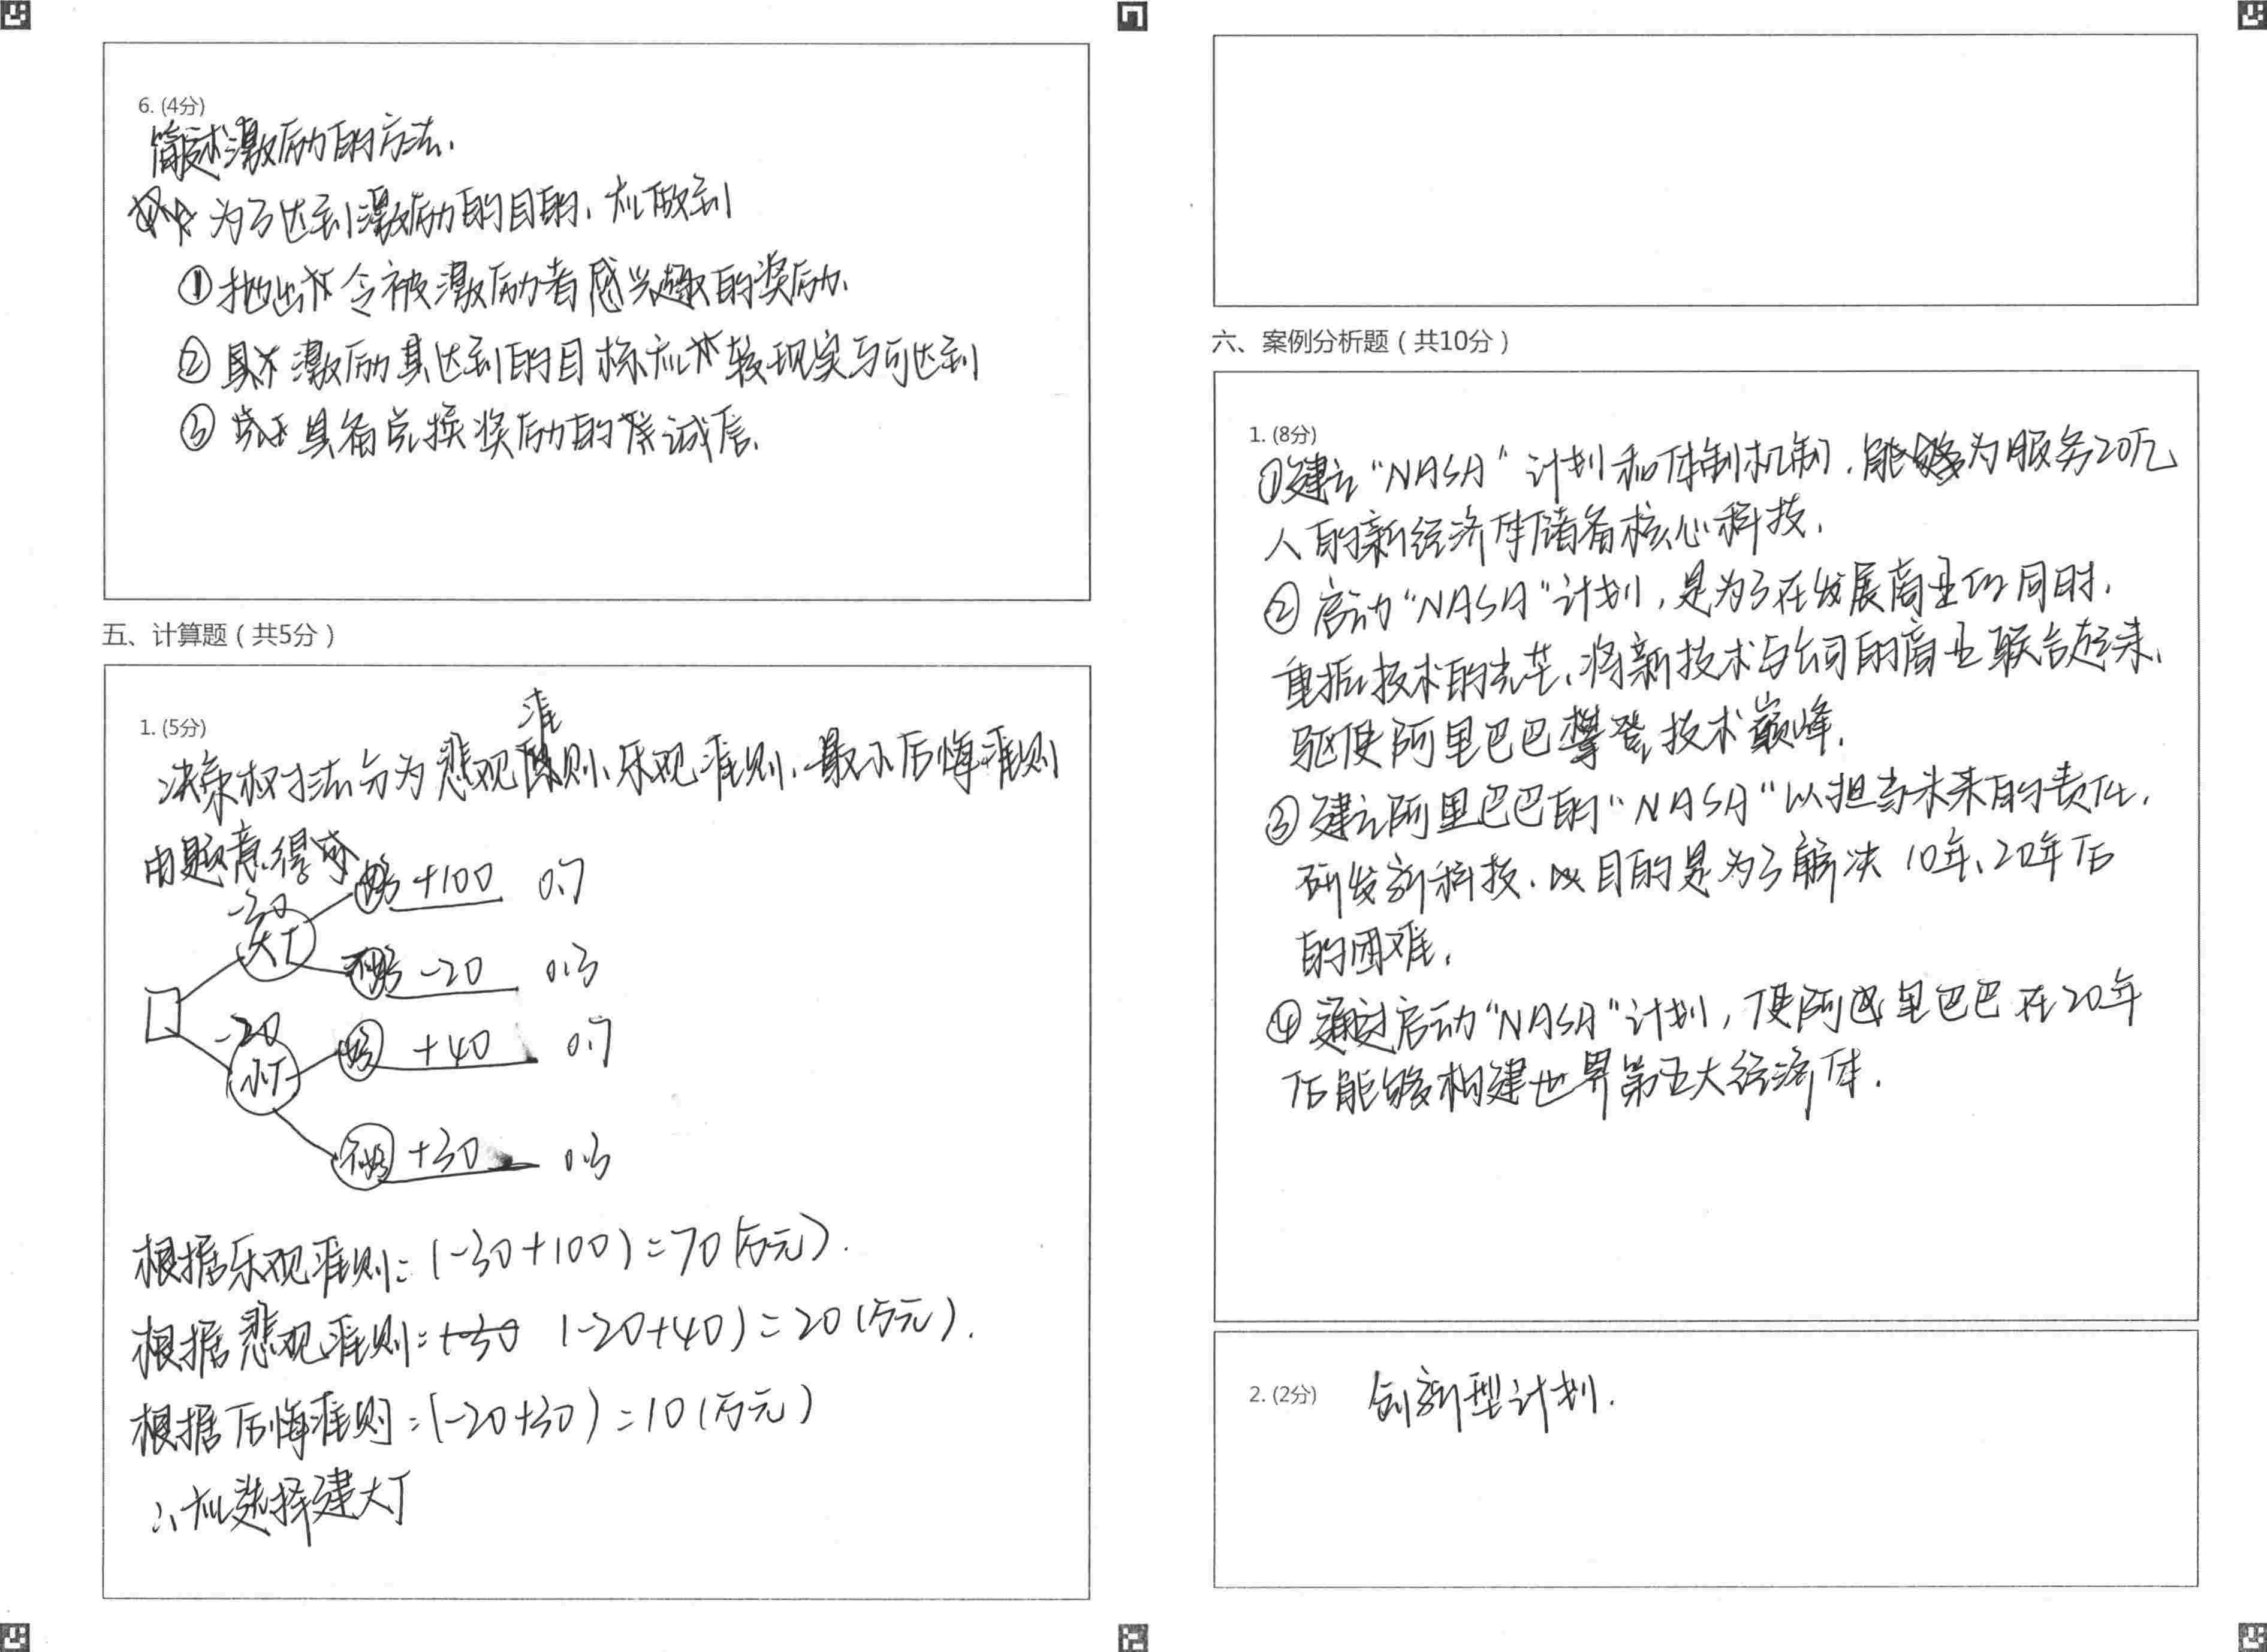 6. (4分)
简述激励的方法.
为了达到激励的目的, 应做到
① 抛出令被激励者感兴趣的奖励.
② 激励其达到的目标应较现实与可达到
③ 具备兑换奖励的诚信.
五、计算题（共5分）
1. (5分)
准
决策树法分为悲观则、乐观准则、最小后悔准则
由题意得
-30
大厂
好 +100 0.7
不好 -20 0.3
-20
小厂
好 +40 0.7
不好 +30 0.3
根据乐观准则: (-30+100)=70(万元).
根据悲观准则: (-20+40)=20(万元).
根据后悔准则: (-20+30)=10(万元)
∴应选择建大厂
六、案例分析题（共10分）
1. (8分)
①建立"NASA"计划和体制机制, 能够为服务20亿
人的新经济体储备核心科技.
② 启动"NASA"计划, 是为了在发展商业的同时,
重振技术的光芒, 将新技术与公司的商业联合起来,
驱使阿里巴巴攀登技术巅峰.
③ 建立阿里巴巴的"NASA"以担当未来的责任,
研发新科技. 目的是为了解决10年、20年后
的困难.
④ 通过启动"NASA"计划, 使阿里巴巴在20年
后能够构建世界第五大经济体.
2. (2分) 创新型计划.